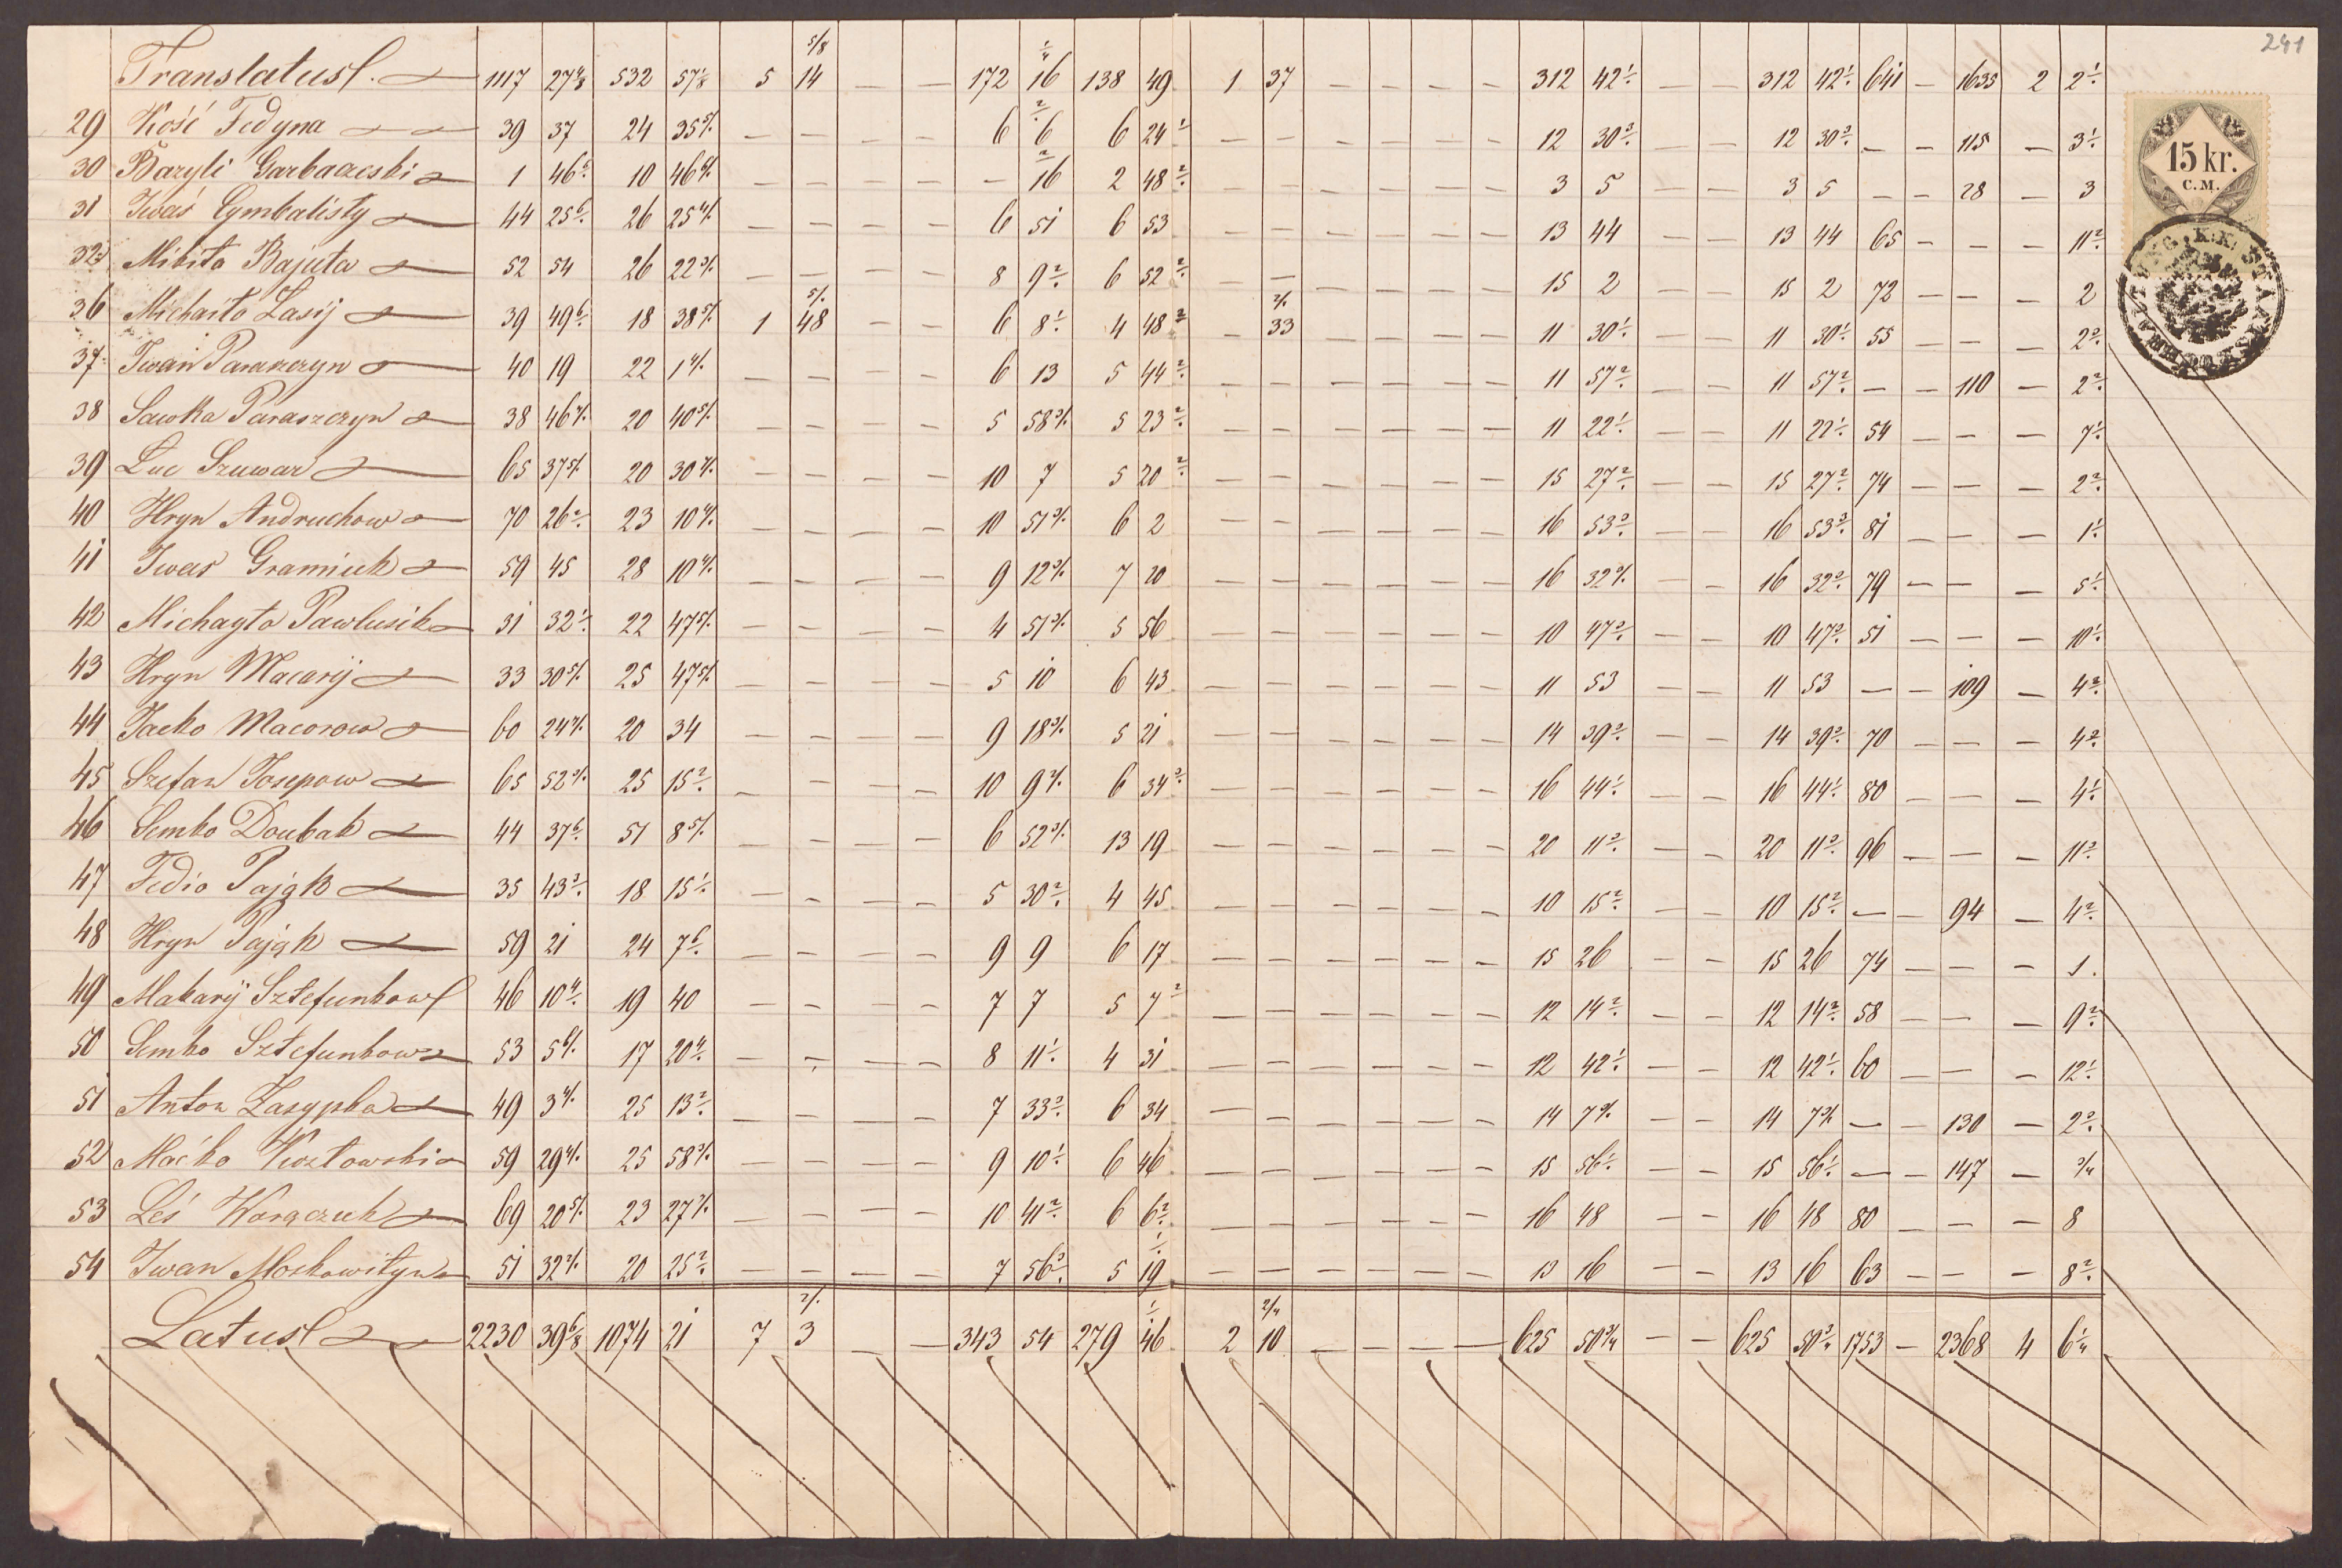 241
Translatus 1117 27 4/8 532 57 1/8 5 14 5/8 — — 172 16 1/4 138 49 1 37 — — — — 312 42 1/. — — 312 42 1/. 641 — 1635 2 2 1/.
29 Kość Fedyna 39 37 24 35 5/. — — — — 6 6 2/. 6 24 1/. — — — — — — 12 30 3/. — — 12 30 3/. — — 115 — 3 1/.
30 Bazyli 1 46 10 46 6/. — — — — — 16 2/. 2 48 2/. — — — — — — 3 5 — — 3 5 — — 28 — 3
31 Iwaś Cymbalisty 44 25 6/. 26 25 4/. — — — — 6 51 6 53 — — — — — — 13 44 — — 13 44 65 — — — 11 2/.
32 Mikita Bajuta 52 54 26 22 3/. — — — — 8 9 2/. 6 52 2/. — — — — — — 15 2 — — 15 2 72 — — — 2
36 Michaiło Zasij 39 49 6/. 18 38 5/. 1 48 5/. — — 6 8 1/. 4 48 2/. — 33 2/. — — — — 11 30 1/. — — 11 30 1/. 55 — — — 2 2/.
37 Iwan Paraszczyn 40 19 22 1 4/. — — — — 6 13 5 44 2/. — — — — — — 11 57 2/. — — 11 57 2/. — — 110 — 2 2/.
38 Sawka Paraszczyn 38 46 20 40 5/. — — — — 5 58 3/. 5 23 2/. — — — — — — 11 22 1/. — — 11 22 1/. 54 — — — 7 1/.
39 Luc Szuwar 65 37 5/. 20 30 — — — — 10 7 5 20 2/. — — — — — — 15 27 2/. — — 15 27 2/. 74 — — — 2 2/.
40 Hryn Andruchow 70 26 2/. 23 10 — — — — 10 51 3/. 6 2 — — — — — — 16 53 3/. — — 16 53 3/. 81 — — — 1 1/.
41 Iwas Gramiuk 59 45 28 10 4/. — — — — 9 12 3/. 7 20 — — — — — — 16 32 3/. — — 16 32 3/. 79 — — — 5 1/.
42 Michayło Pawlusik 31 32 1/. 22 47 5/. — — — — 4 51 3/. 5 56 — — — — — — 10 47 3/. — — 10 47 3/. 51 — — — 10 1/.
43 Hryn Macarij 33 30 5/. 25 47 5/. — — — — 5 10 6 43 — — — — — — 11 53 — — 11 53 — — 109 — 4 2/.
44 Jacko Macorow 60 24 20 34 — — — — 9 18 3/. 5 21 — — — — — — 14 39 3/. — — 14 39 3/. 70 — — — 4 2/.
45 Szefan Josepow 65 52 25 15 2/. — — — — 10 9 6 34 — — — — — — 16 44 1/. — — 16 44 1/. 80 — — — 4 1/.
46 Semko Doubak 44 37 6/. 51 8 5/. — — — — 6 52 3/. 13 19 — — — — — — 20 11 3/. — — 20 11 3/. 96 — — — 11 2/.
47 Fedio Pająk 35 43 18 15 1/. — — — — 5 30 2/. 4 45 — — — — — — 10 15 2/. — — 10 15 2/. — — 94 — 4 2/.
48 Hryn Pająk 59 21 24 7 6/. — — — — 9 9 6 17 — — — — — — 15 26 — — 15 26 74 — — — 1
49 Makarij Sztefunkow 46 10 4/. 19 40 — — — — 7 7 5 7 2/. — — — — — — 12 14 2/. — — 12 14 2/. 58 — — — 9 2/.
50 Semko Sztefunkow 53 5 6/. 17 20 4/. — — — — 8 11 1/. 4 31 — — — — — — 12 42 1/. — — 12 42 1/. 60 — — — 12 1/.
51 Anton Zasypka 49 3 4/. 25 13 2/. — — — — 7 33 3/. 6 34 — — — — — — 14 7 3/. — — 14 7 3/. — — 130 — 2 2/.
52 Maćko Kozłowski 59 29 4/. 25 58 3/. — — — — 9 10 1/. 6 46 — — — — — — 15 56 1/. — — 15 56 1/. — — 147 — 3/4
53 Leś Karączuk 69 20 5/. 23 27 — — — — 10 41 2/. 6 6 2/. — — — — — — 16 48 — — 16 48 80 — — — 8
54 Iwan Moskowityn 51 32 20 25 2/. — — — — 7 56 3/. 5 19 1/. — — — — — — 13 16 — — 13 16 63 — — — 8 2/.
Latus 2230 39 6/8 1074 21 7 3 2/. — — 343 54 279 46 1/. 2 10 2/4 — — — — 625 50 3/4 — — 625 50 3/4 1753 — 2368 4 6 1/4
15 kr.
C.M.
K.K.